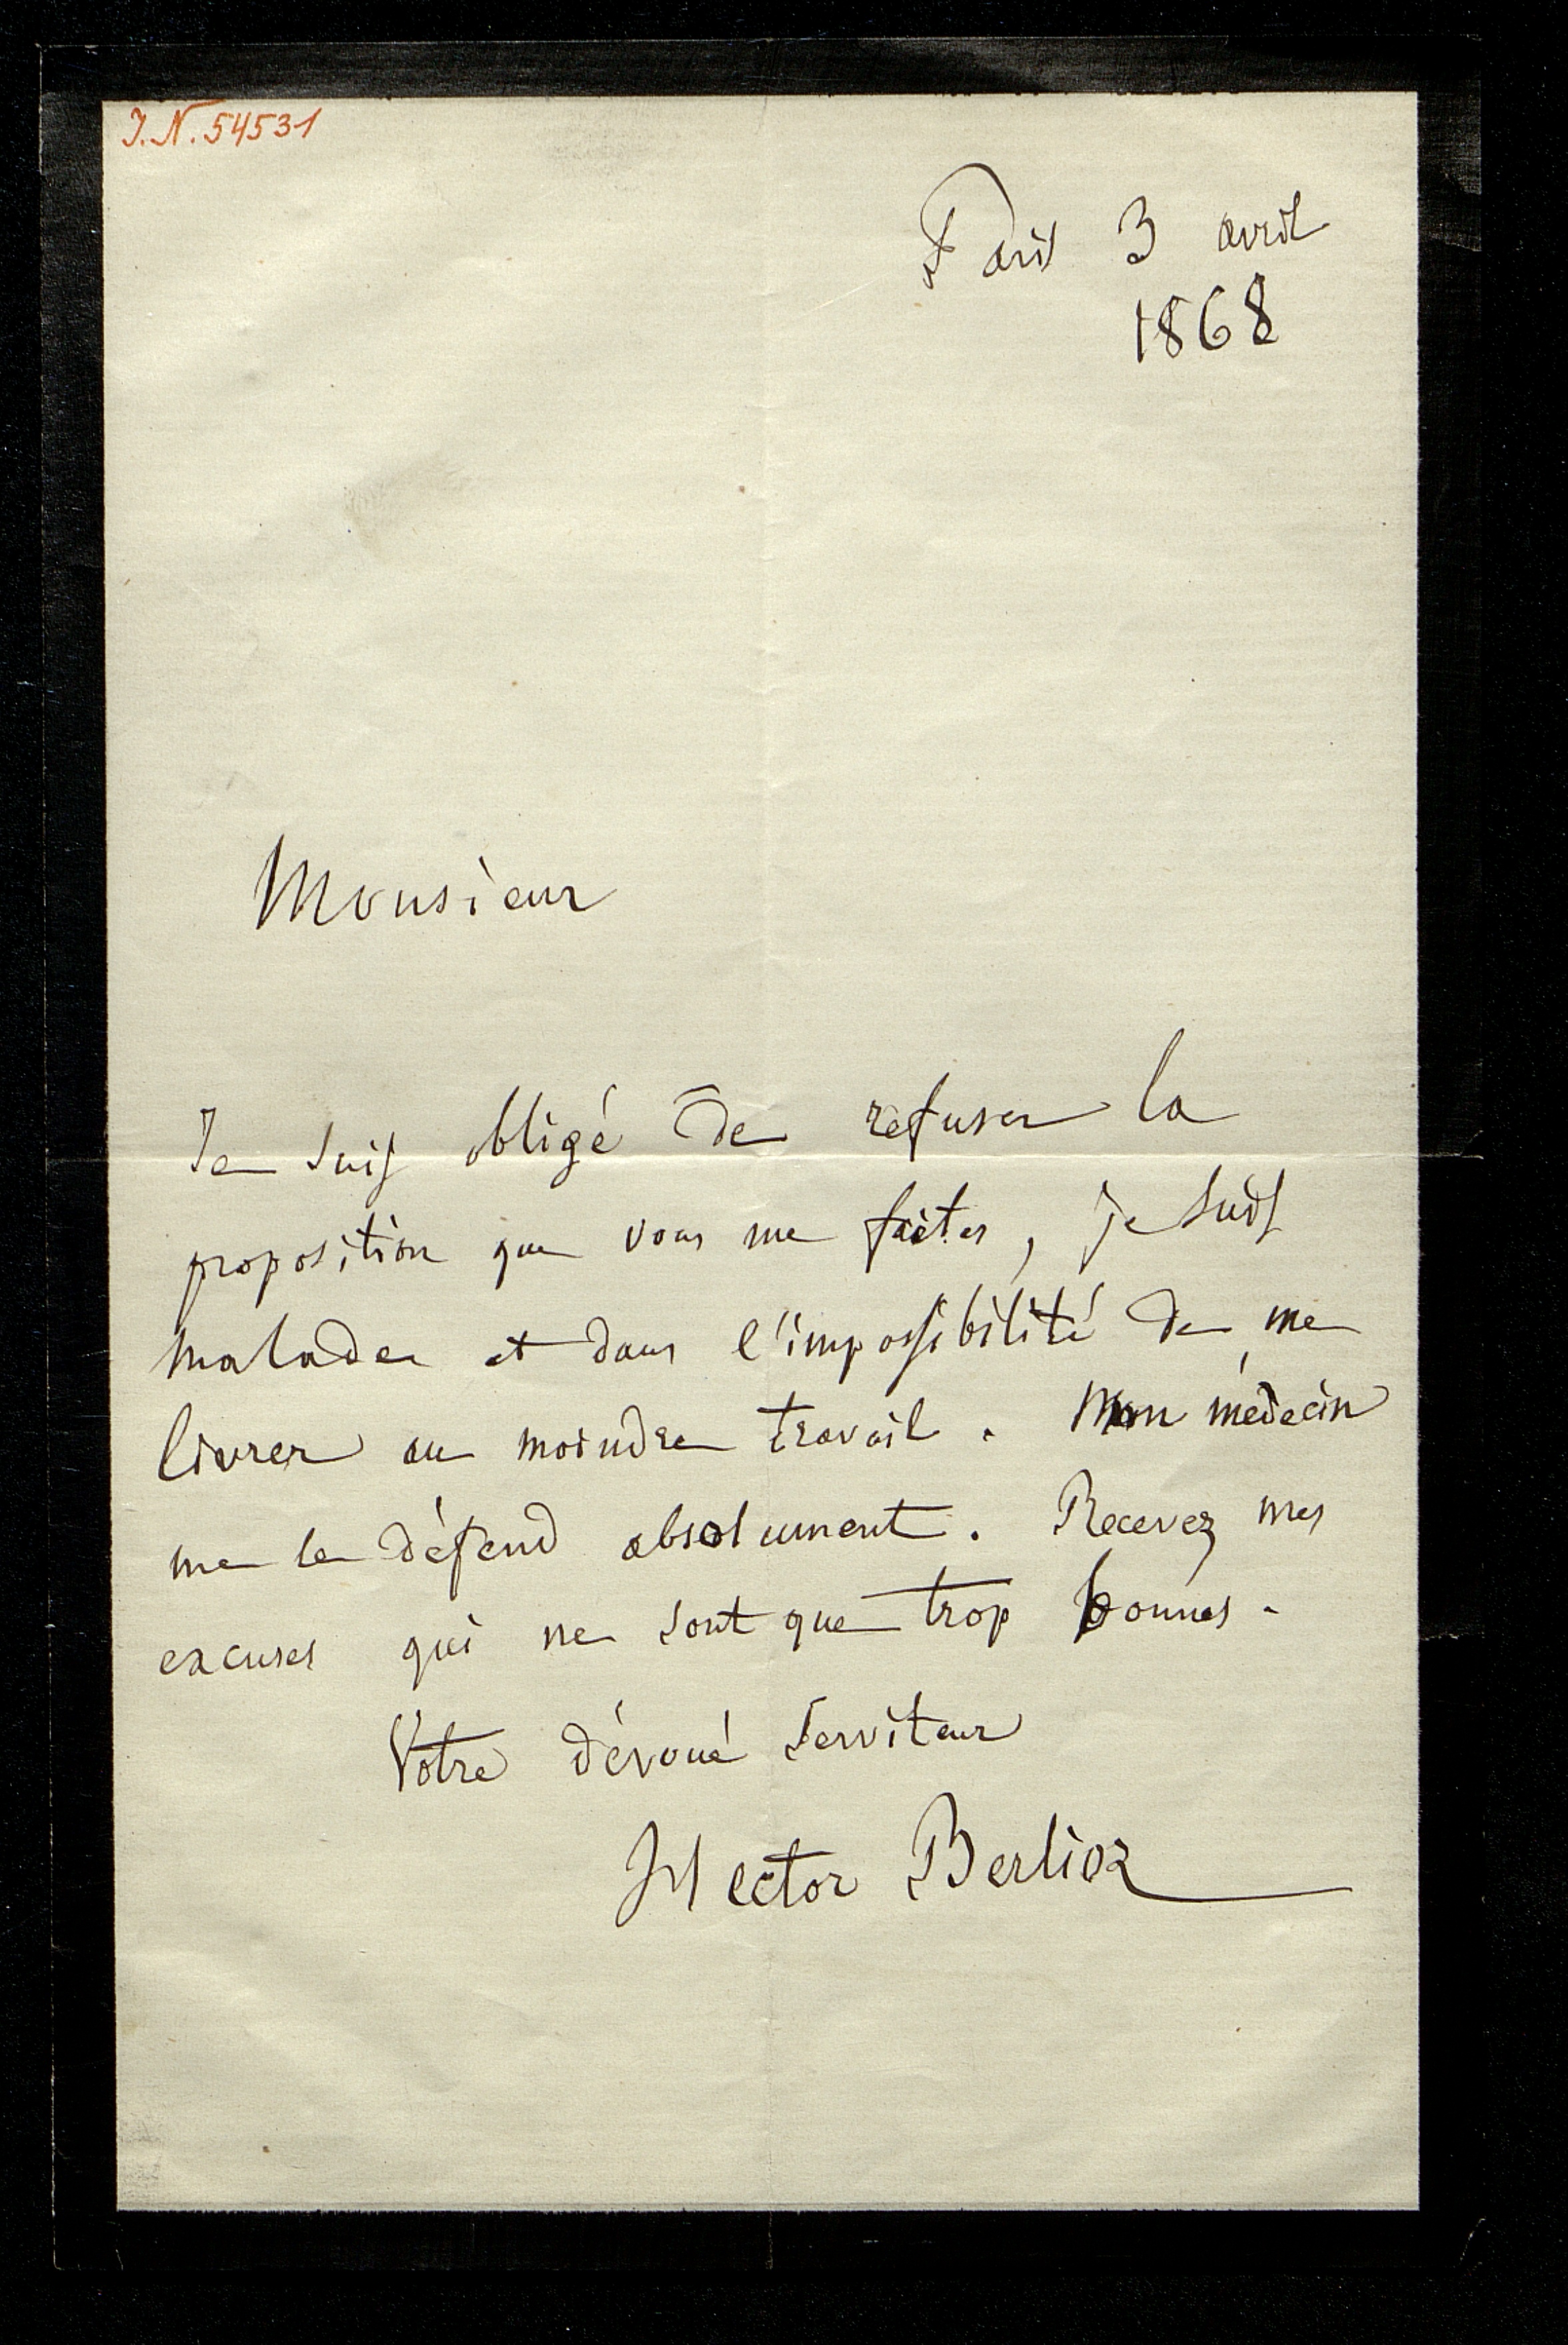 J.N. 54531
Paris 3 avril
1868
Monsieur
Je suis obligé de refuser la
proposition que vous me faites, je suis
malade et dans l'impossibilité de me
livrer au moindre travail. Mon médecin
me le défend absolument. Recevez mes
excuses qui ne sont que trop bonnes.
Votre dévoué serviteur
Hector Berlioz